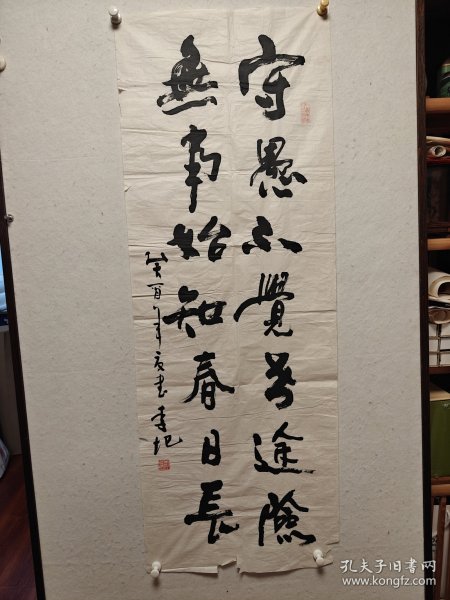 守愚不覺世途險
無事始知春日長
癸酉年夏書李圯
孔夫子旧书网
www.kongfz.com